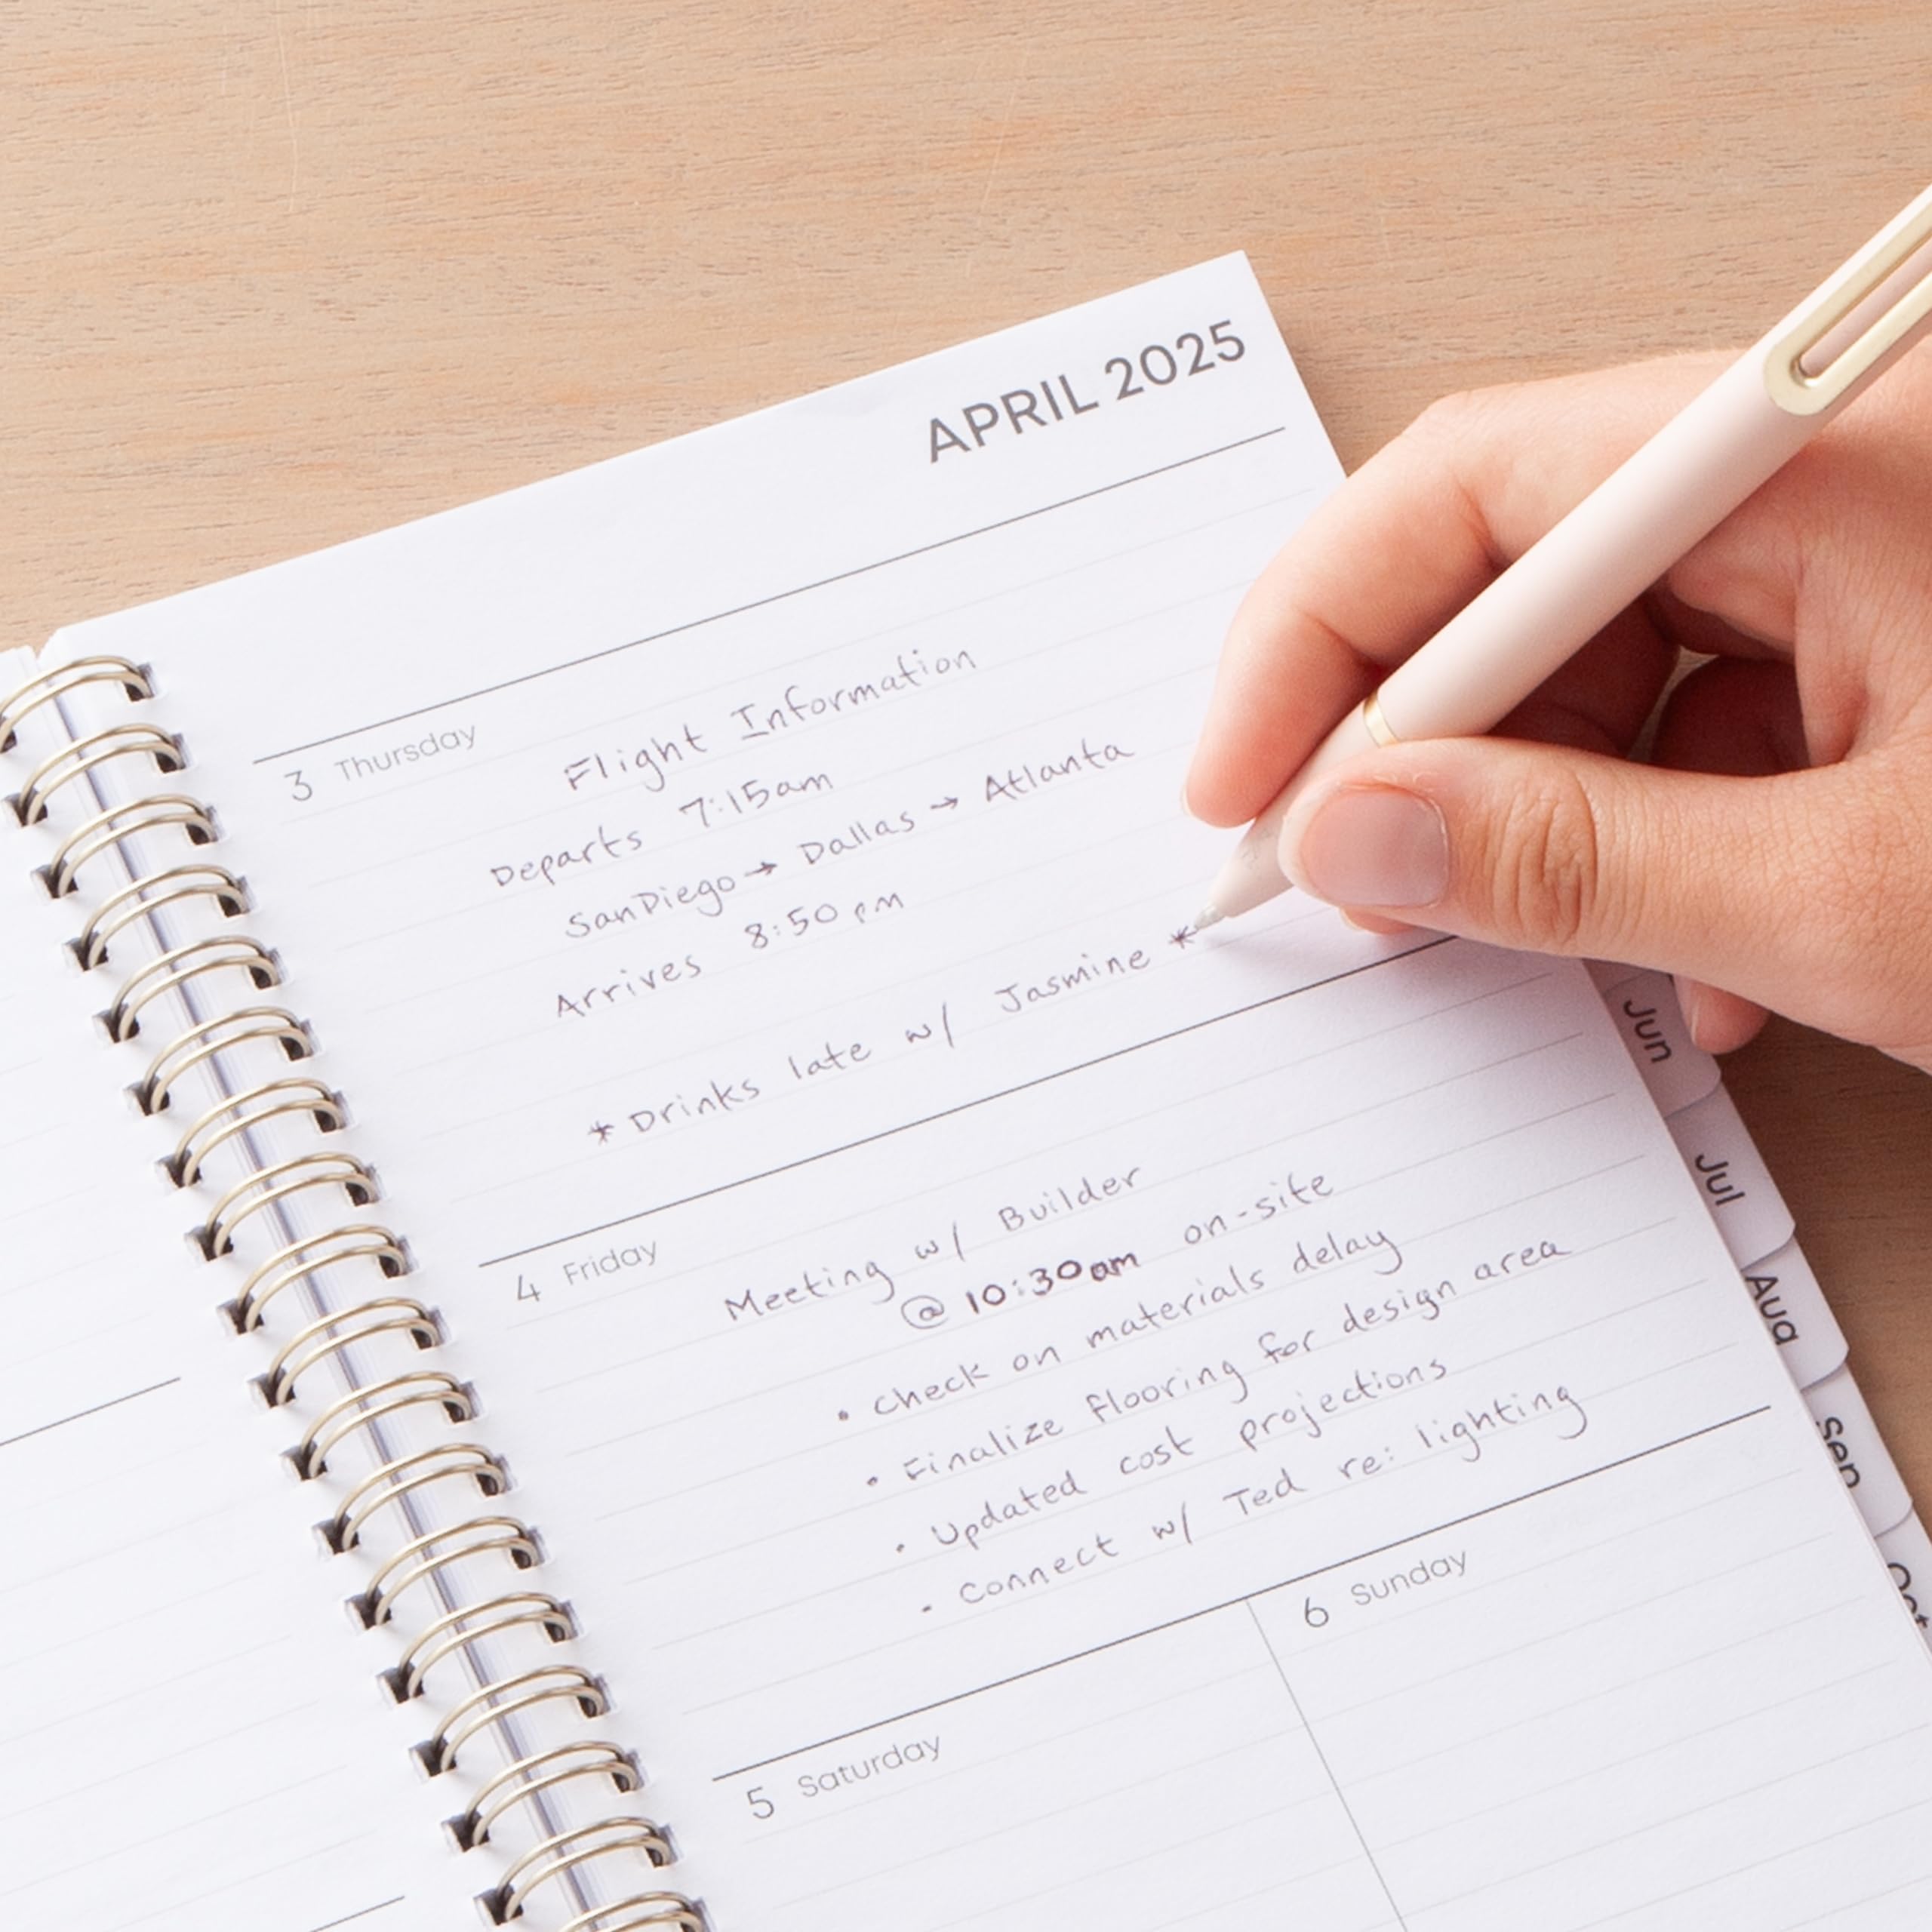 APRIL 2025
3 Thursday
Flight Information
Departs 7:15am
SanDiego → Dallas → Atlanta
Arrives 8:50 pm
* Drinks late w/ Jasmine *
4 Friday
Meeting w/ Builder
@ 10:30am on-site
• check on materials delay
• Finalize flooring for design area
• Updated cost projections
• Connect w/ Ted re: lighting
5 Saturday
6 Sunday
Jun
Jul
Aug
Sep
Oct